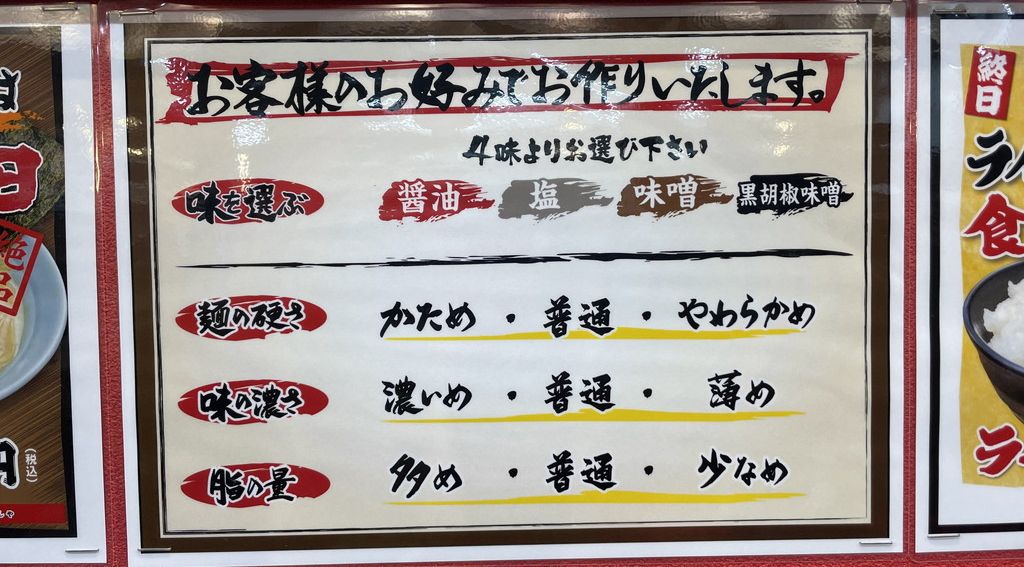 お客様のお好みでお作りいたします。
4味よりお選び下さい
味を選ぶ 醤油 塩 味噌 黒胡椒味噌
麺の硬さ かため・普通・やわらかめ
味の濃さ 濃いめ・普通・薄め
脂の量 多め・普通・少なめ
絶品
円
(税込)
終日
ラ
食
ラ